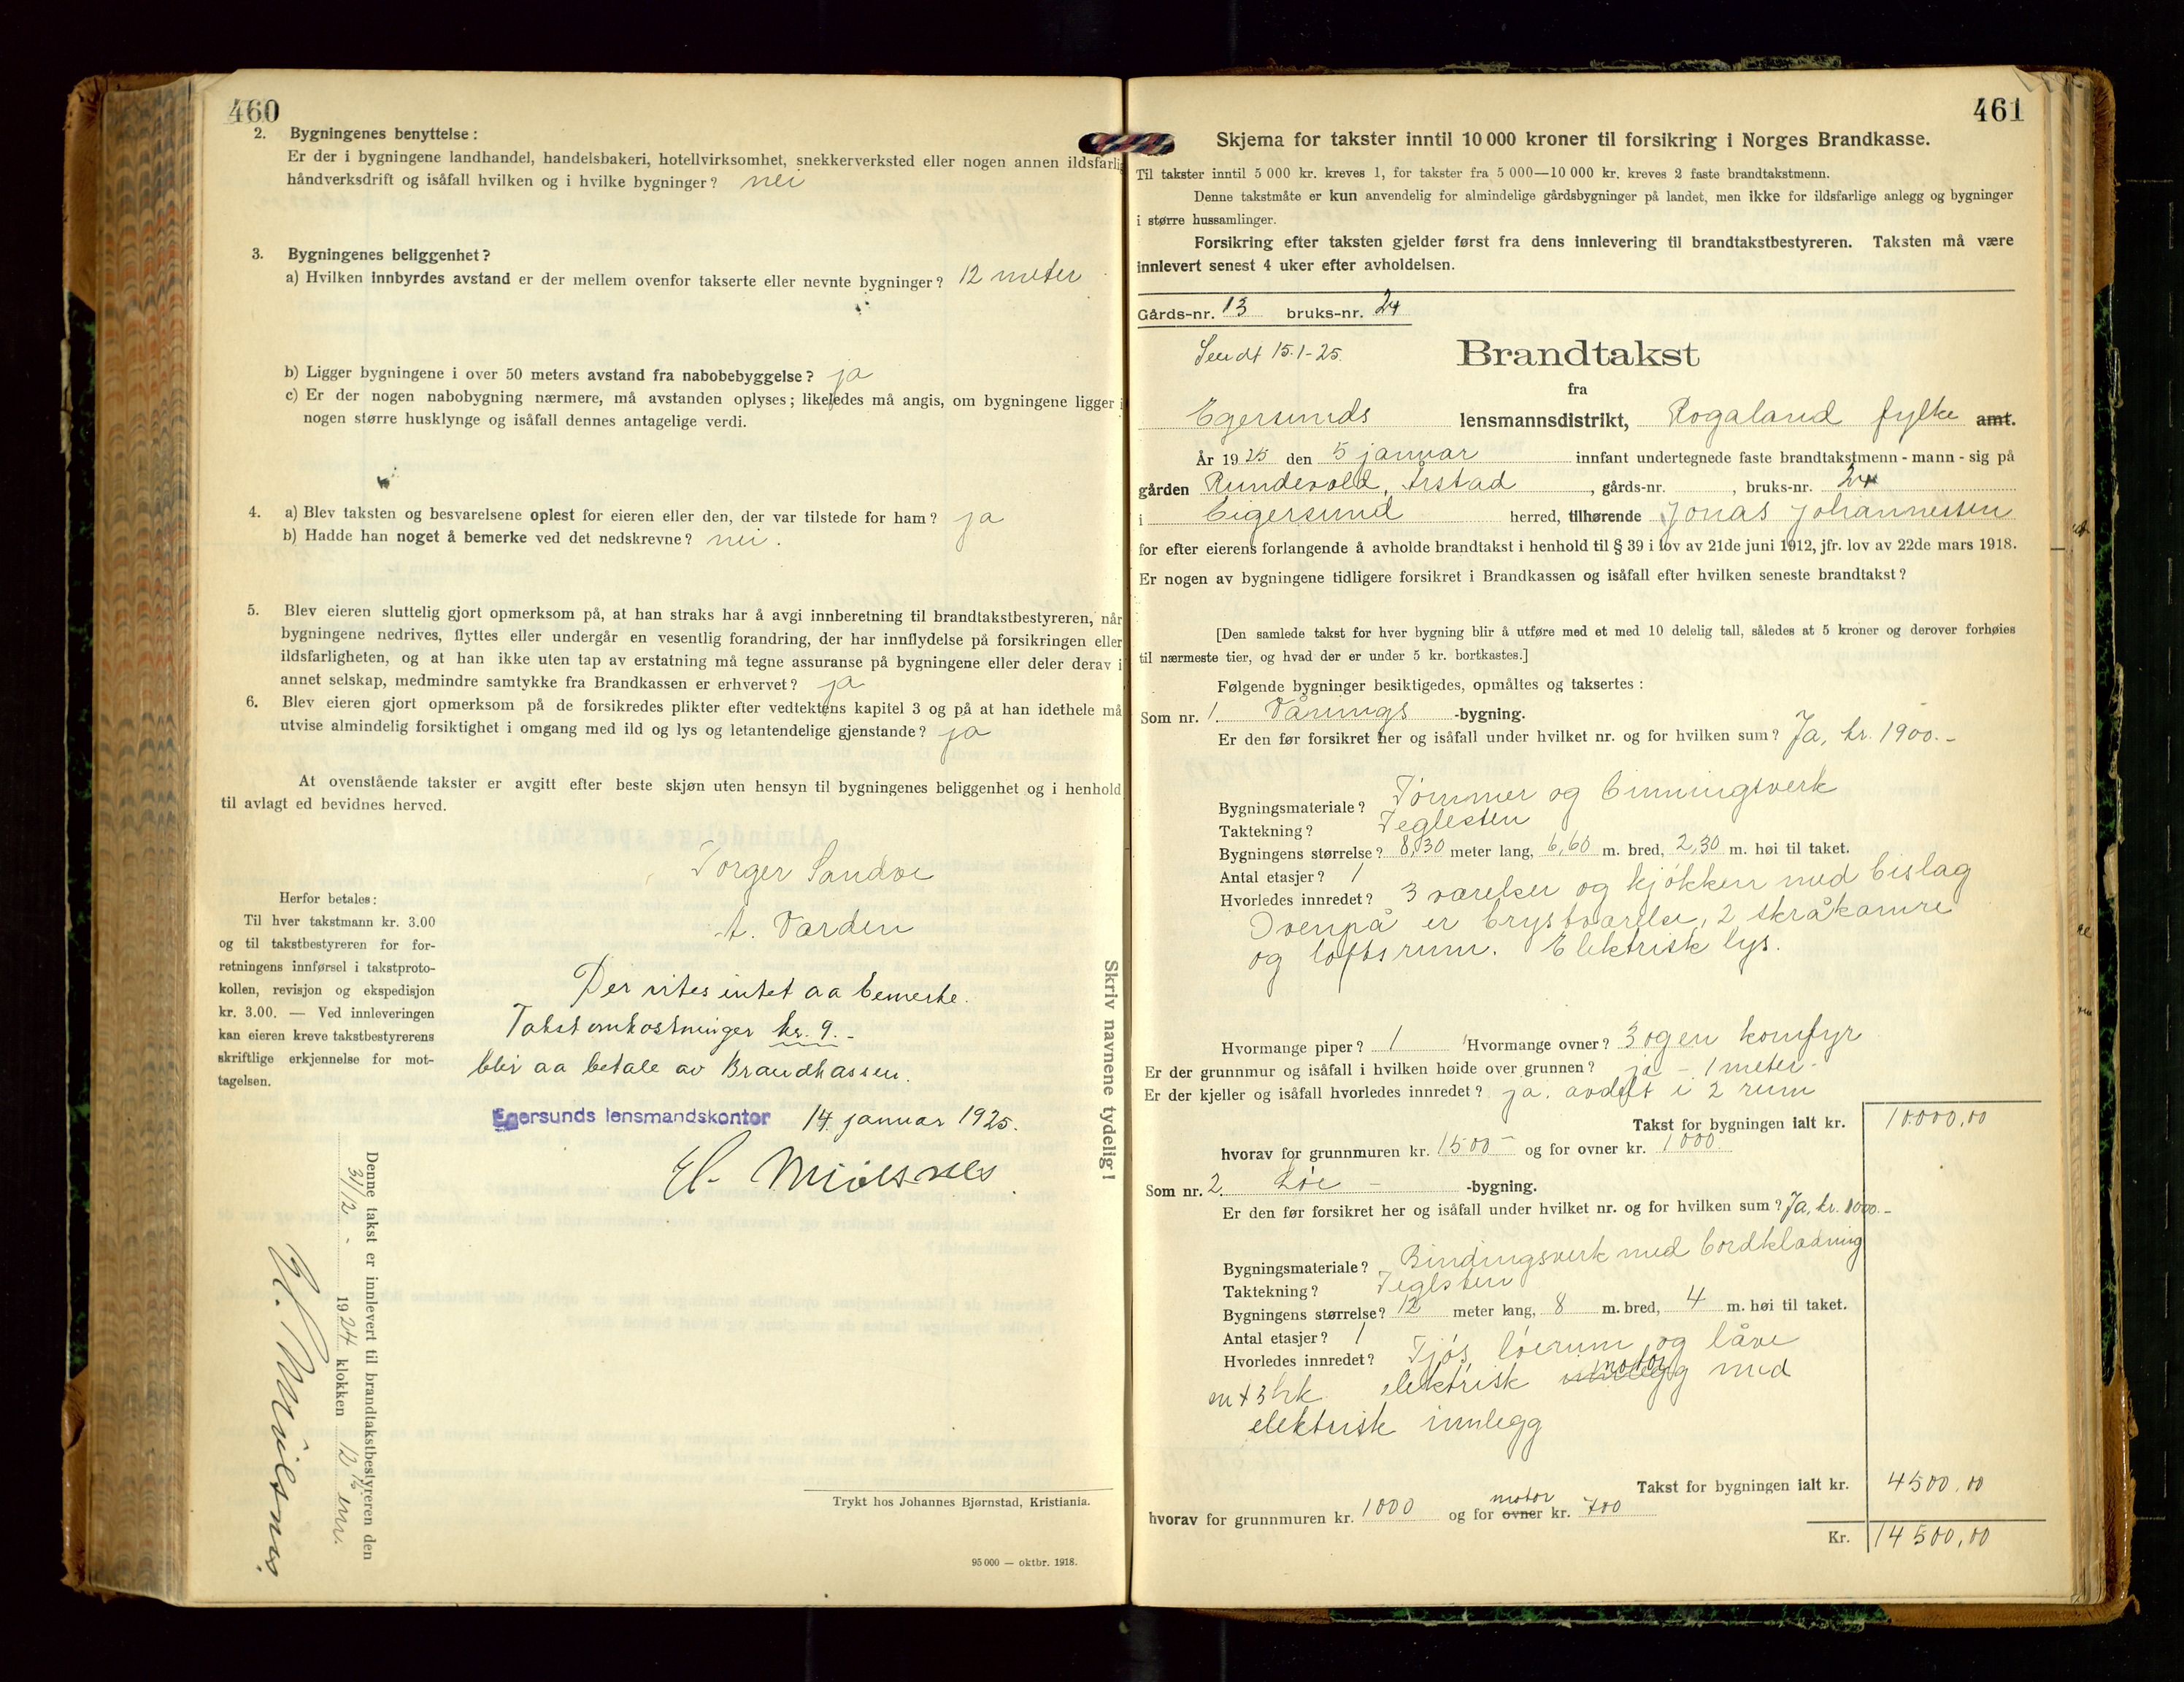 460
2. Bygningenes benyttelse:
Er der i bygningene landhandel, handelsbakeri, hotellvirksomhet, snekkerverksted eller nogen annen ildsfarlig
håndverksdrift og isåfall hvilken og i hvilke bygninger? nei
3. Bygningenes beliggenhet?
a) Hvilken innbyrdes avstand er der mellem ovenfor takserte eller nevnte bygninger? 12 meter
b) Ligger bygningene i over 50 meters avstand fra nabobebyggelse? ja
c) Er der nogen nabobygning nærmere, må avstanden oplyses; likeledes må angis, om bygningene ligger i
nogen større husklynge og isåfall dennes antagelige verdi.
4. a) Blev taksten og besvarelsene oplest for eieren eller den, der var tilstede for ham? ja
b) Hadde han noget å bemerke ved det nedskrevne? nei.
5. Blev eieren sluttelig gjort opmerksom på, at han straks har å avgi innberetning til brandtakstbestyreren, når
bygningene nedrives, flyttes eller undergår en vesentlig forandring, der har innflydelse på forsikringen eller
ildsfarligheten, og at han ikke uten tap av erstatning må tegne assuranse på bygningene eller deler derav i
annet selskap, medmindre samtykke fra Brandkassen er erhvervet? ja
6. Blev eieren gjort opmerksom på de forsikredes plikter efter vedtektens kapitel 3 og på at han idethele må
utvise almindelig forsiktighet i omgang med ild og lys og letantendelige gjenstande? ja
At ovenstående takster er avgitt efter beste skjøn uten hensyn til bygningenes beliggenhet og i henhold
til avlagt ed bevidnes herved.
Torger Sandve
A. Varden
Herfor betales:
Til hver takstmann kr. 3.00
og til takstbestyreren for for-
retningens innførsel i takstproto-
kollen, revisjon og ekspedisjon
kr. 3.00. — Ved innleveringen
kan eieren kreve takstbestyrerens
skriftlige erkjennelse for mot-
tagelsen.
Der vites intet aa bemerke.
Takstomkostninger kr. 9.-
blir aa betale av Brandkassen.
Egersunds lensmandskontor 14. januar 1925.
Skriv navnene tydelig!
Denne takst er innlevert til brandtakstbestyreren den
31/12 - 1924 klokken 12 1/2 em.
Trykt hos Johannes Bjørnstad, Kristiania.
95 000 — oktbr. 1918.
461
Skjema for takster inntil 10 000 kroner til forsikring i Norges Brandkasse.
Til takster inntil 5 000 kr. kreves 1, for takster fra 5 000—10 000 kr. kreves 2 faste brandtakstmenn.
Denne takstmåte er kun anvendelig for almindelige gårdsbygninger på landet, men ikke for ildsfarlige anlegg og bygninger
i større hussamlinger.
Forsikring efter taksten gjelder først fra dens innlevering til brandtakstbestyreren. Taksten må være
innlevert senest 4 uker efter avholdelsen.
Gårds-nr. 13 bruks-nr. 24
Sendt 15.1-25.
Brandtakst
fra
Egersunds lensmannsdistrikt, Rogaland fylke amt.
År 1925 den 5 januar innfant undertegnede faste brandtakstmenn - mann - sig på
gården Rundevold, Årstad, gårds-nr. , bruks-nr. 24
i Eigersund herred, tilhørende Jonas Johannessen
for efter eierens forlangende å avholde brandtakst i henhold til § 39 i lov av 21de juni 1912, jfr. lov av 22de mars 1918.
Er nogen av bygningene tidligere forsikret i Brandkassen og isåfall efter hvilken seneste brandtakst?
[Den samlede takst for hver bygning blir å utføre med et med 10 delelig tall, således at 5 kroner og derover forhøies
til nærmeste tier, og hvad der er under 5 kr. bortkastes.]
Følgende bygninger besiktigedes, opmåltes og taksertes:
Som nr. 1. Vånings -bygning.
Er den før forsikret her og isåfall under hvilket nr. og for hvilken sum? Ja, kr. 1900.-
Bygningsmateriale? Tømmer og binningsverk
Taktekning? Teglesten
Bygningens størrelse? 8,30 meter lang, 6,60 m. bred, 2,30 m. høi til taket.
Antal etasjer? 1
Hvorledes innredet? 3 værelser og kjøkken med bislag
Ovenpå er brystværelse, 2 skråkamre
og loftsrum. Elektrisk lys.
Hvormange piper? 1 Hvormange ovner? 3 og en komfyr
Er der grunnmur og isåfall i hvilken høide over grunnen? ja - 1 meter-
Er der kjeller og isåfall hvorledes innredet? ja. avdelt i 2 rum
Takst for bygningen ialt kr. 10.000,00
hvorav for grunnmuren kr. 1500 - og for ovner kr. 1000
Som nr. 2. Løe - -bygning.
Er den før forsikret her og isåfall under hvilket nr. og for hvilken sum? Ja, kr. 1000.-
Bygningsmateriale? Bindingsverk med bordklædning
Taktekning? Teglsten
Bygningens størrelse? 12 meter lang, 8 m. bred, 4 m. høi til taket.
Antal etasjer? 1
Hvorledes innredet? Fjøs, løerum og låve
m + 3 hk. elektrisk innlegg motor med
elektrisk innlegg
Takst for bygningen ialt kr. 4500,00
hvorav for grunnmuren kr. 1000 og for ovner motor kr. 700
Kr. 14500,00